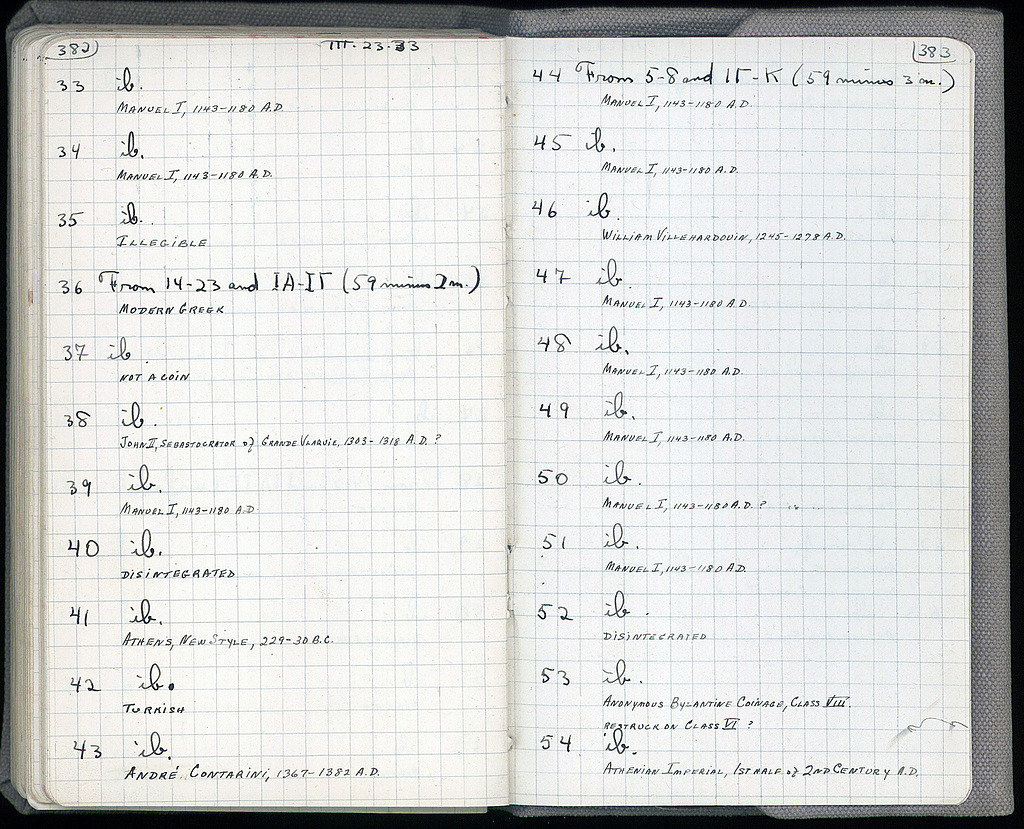 382
III·23·33
33 ib.
MANUEL I, 1143-1180 A.D.
34 ib.
MANUEL I, 1143-1180 A.D.
35 ib.
ILLEGIBLE
36 From 14-23 and ΙΑ-ΙΓ (59 minus 2 m.)
MODERN GREEK
37 ib.
NOT A COIN
38 ib.
JOHN II, SEBASTOCRATOR of GRANDE VLAQUIE, 1303-1318 A.D. ?
39 ib.
MANUEL I, 1143-1180 A.D
40 ib.
DISINTEGRATED
41 ib.
ATHENS, NEW STYLE, 229-30 B.C.
42 ib.
TURKISH
43 ib.
ANDRÉ CONTARINI, 1367-1382 A.D.
383
44 From 5-8 and ΙΓ-Κ (59 minus 3 m.)
MANUEL I, 1143-1180 A.D.
45 ib.
MANUEL I, 1143-1180 A.D.
46 ib.
WILLIAM VILLEHARDOUIN, 1245-1278 A.D.
47 ib.
MANUEL I, 1143-1180 A.D.
48 ib.
MANUEL I, 1143-1180 A.D.
49 ib.
MANUEL I, 1143-1180 A.D.
50 ib.
MANUEL I, 1143-1180 A.D. ?
51 ib.
MANUEL I, 1143-1180 A.D.
52 ib.
DISINTEGRATED
53 ib.
ANONYMOUS BYZANTINE COINAGE, CLASS VIII.
RESTRUCK ON CLASS VI ?
54 ib.
ATHENIAN IMPERIAL, 1ST HALF of 2ND CENTURY A.D.